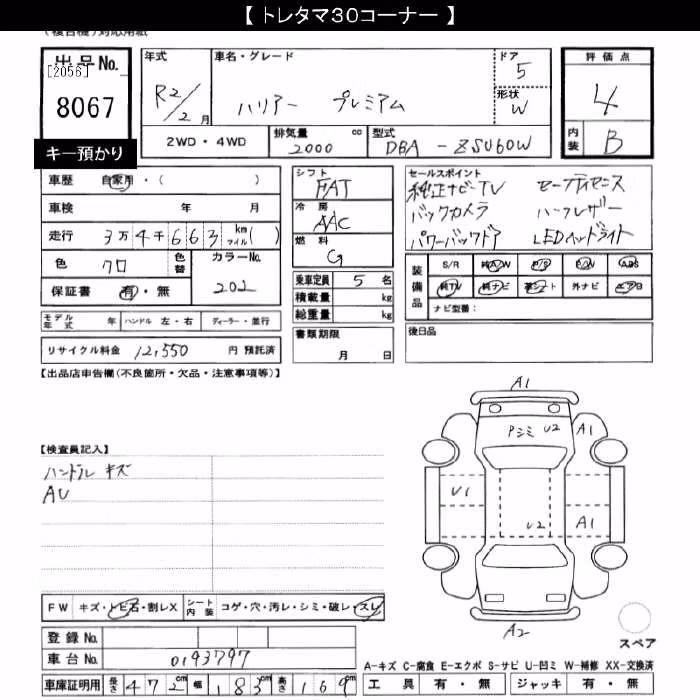 【 トレタマ30コーナー 】
(複合機)対応用紙
出品No.
[2056]
8067
キー預かり
年式
R2/2 月
車名・グレード
ハリアー プレミアム
ドア
5
形状
W
評価点
4
内装
B
2WD・4WD
排気量 cc
2000
型式
DBA - ZSU60W
車歴 自家用・( )
車検 年 月
走行 3万4千663 km マイル( )
色 クロ
色替
カラーNo.
202
保証書 有・無
モデル年式 年 ハンドル 左・右 ディーラー・並行
リサイクル料金 12,550 円 預託済
シフト
FAT
冷房
AAC
燃料
G
乗車定員 5 名
積載量 kg
総重量 kg
書類期限
月 日
セールスポイント
純正ナビTV セーフティセンス
バックカメラ ハーフレザー
パワーバックドア LEDヘッドライト
装備品
S/R 純A/W P/S P/W ABS
純TV 純ナビ 革シート 外ナビ エアB
ナビ型番:
後日品
【出品店申告欄(不良箇所・欠品・注意事項等)】
【検査員記入】
ハンドル キズ
AU
A1
Pシミ U2 A1
U1
U2 A1
A2
スペア
FW キズ・トビ石・割レX シート内装 コゲ・穴・汚レ・シミ・破レ・スレ
登録 No.
車台 No. 0193797
車庫証明用 長さ 472cm 幅 183cm 高さ 169cm
A-キズ C-腐食 E-エクボ S-サビ U-凹ミ W-補修 XX-交換済
工具 有・無 ジャッキ 有・無